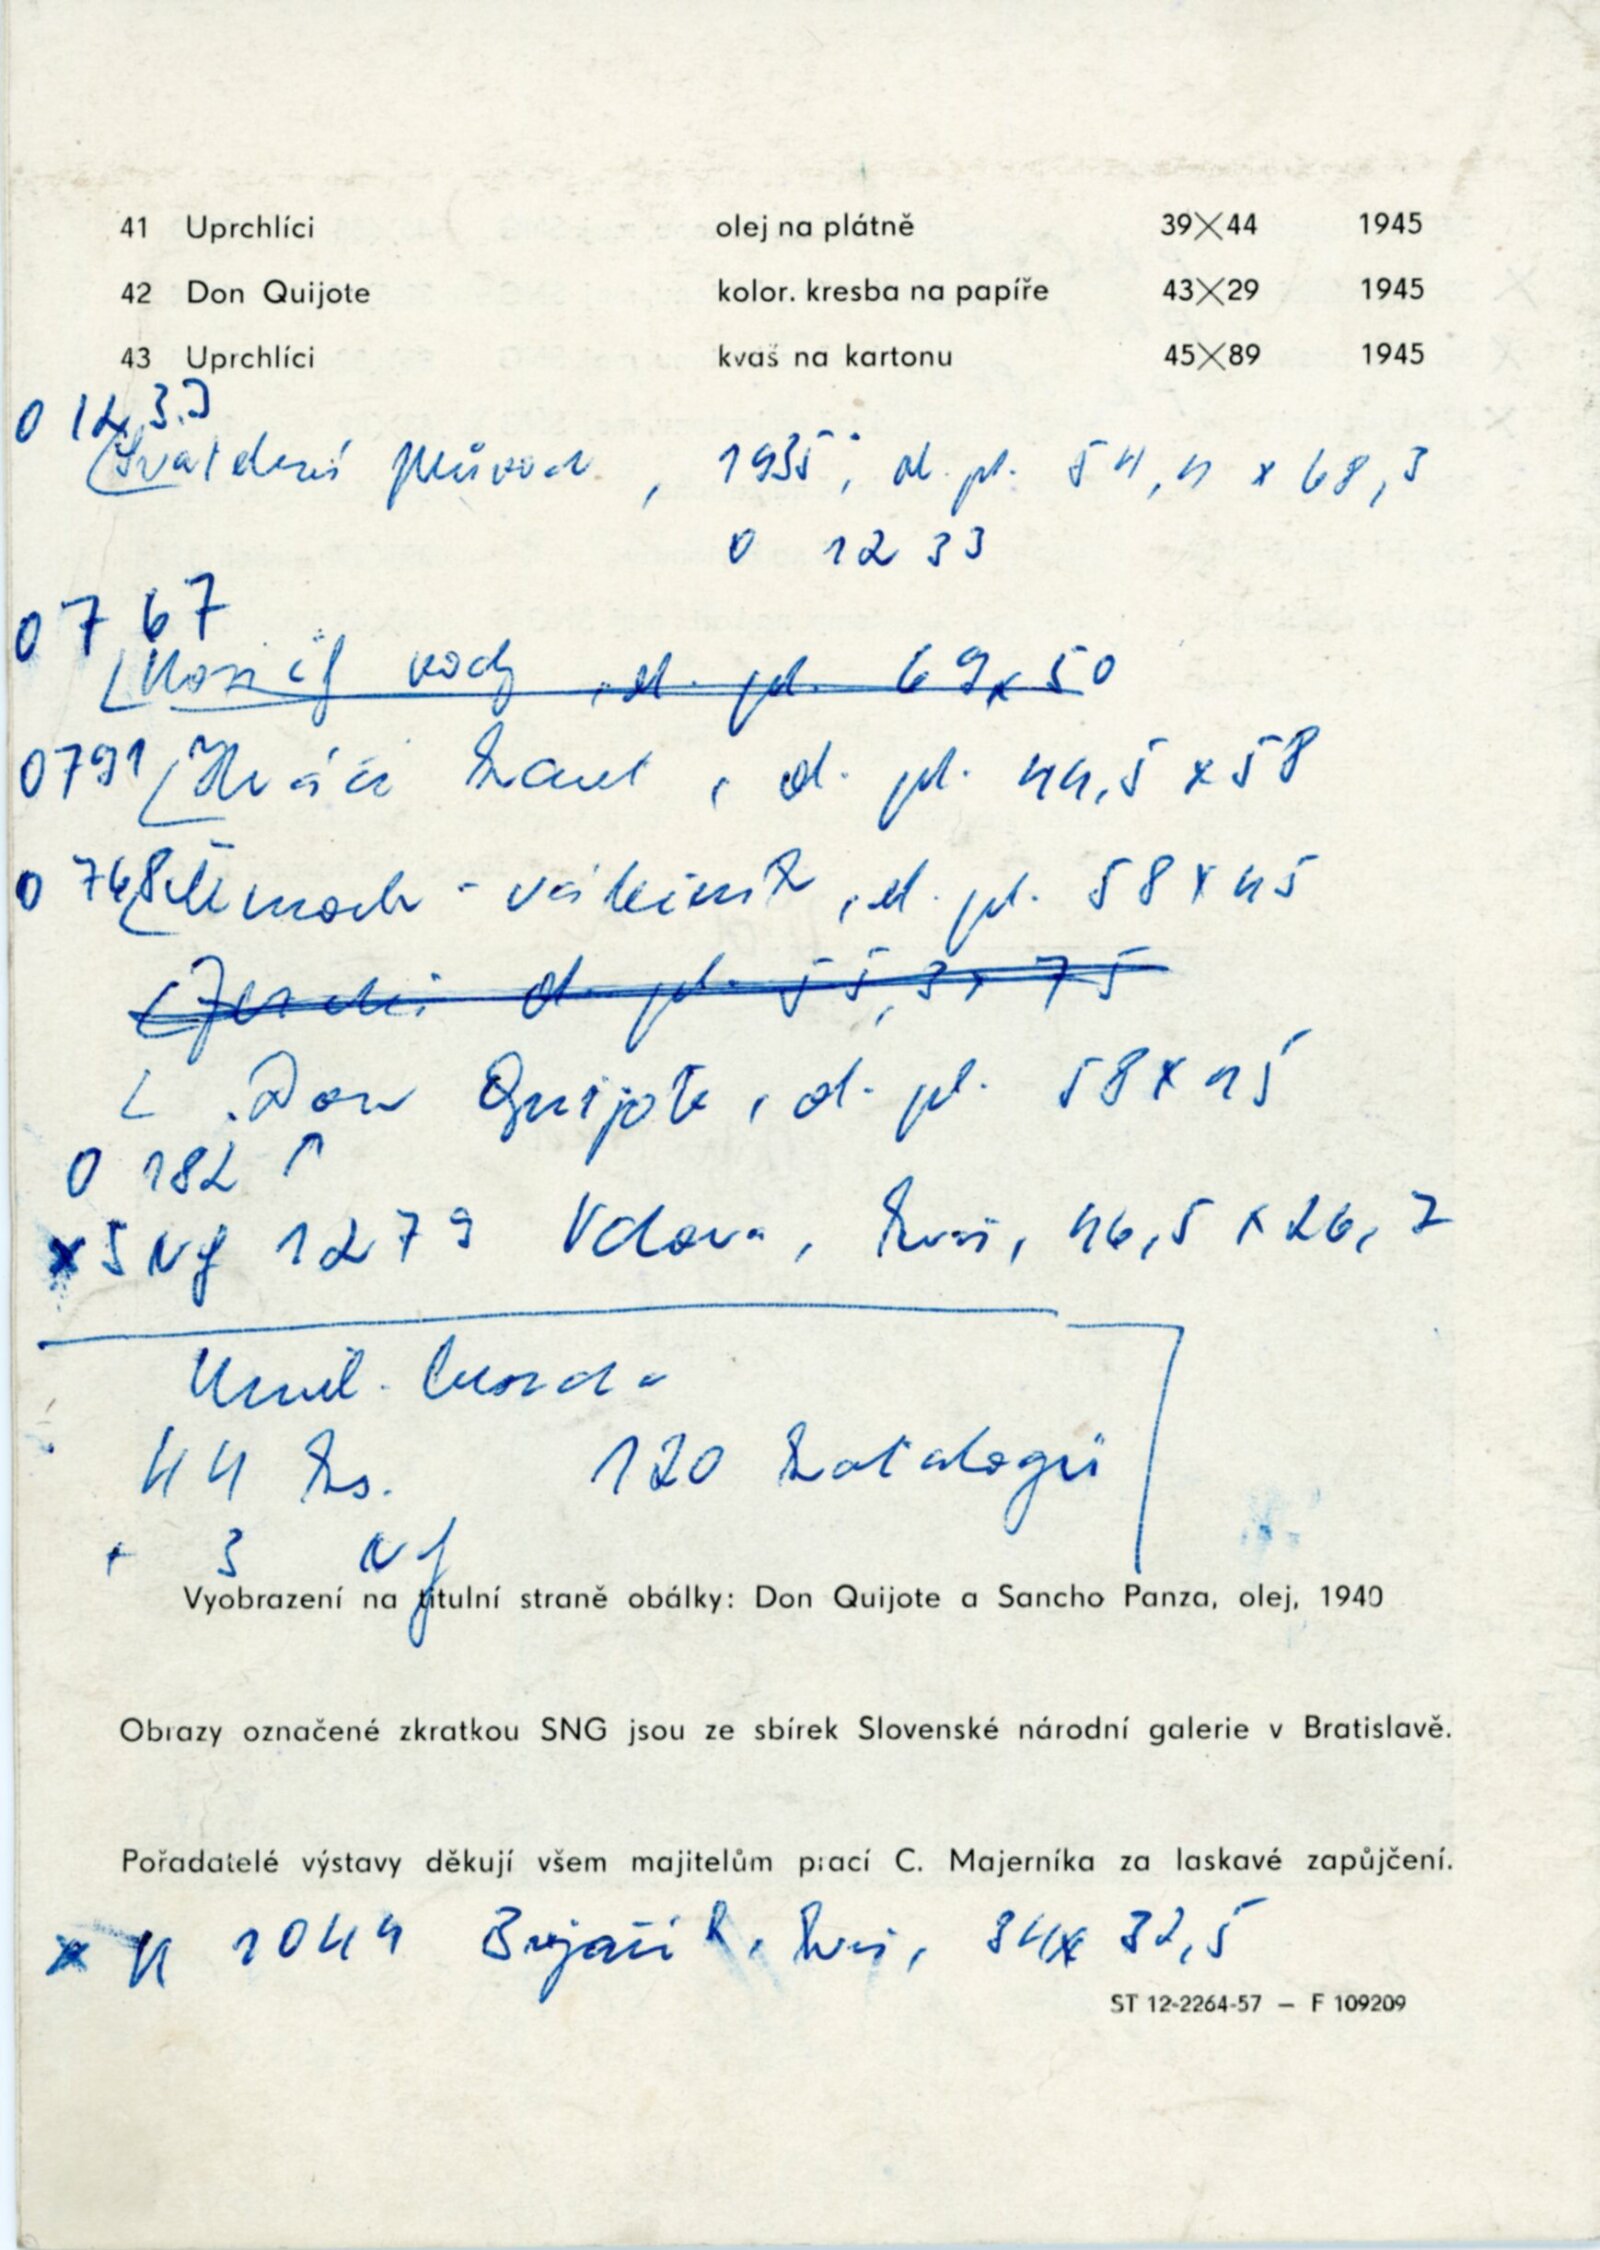 41 Uprchlíci olej na plátně 39×44 1945
42 Don Quijote kolor. kresba na papíře 43×29 1945
43 Uprchlíci kvaš na kartonu 45×89 1945
0 1233
Svatební průvod, 1935, ol. pl. 54,4 x 68,3
0 1233
0767
Nosič vody, ol. pl. 69x50
0791 Hráči karet, ol. pl. 44,5 x 58
0 768 Černoch - ol. pl. 58 x 45
ol. pl. 55,3 x 75
Don Quijote, ol. pl. 58 x 45
0 182 ↑
x SNG 1279 Vdova, kvaš, 46,5 x 26,7
Uměl. beseda
44 ks. 120 katalogů
+ 3 NG
Vyobrazení na titulní straně obálky: Don Quijote a Sancho Panza, olej, 1940
Obrazy označené zkratkou SNG jsou ze sbírek Slovenské národní galerie v Bratislavě.
Pořadatelé výstavy děkují všem majitelům prací C. Majerníka za laskavé zapůjčení.
x K 1044 kvaš, 34x 32,5
ST 12-2264-57 — F 109209